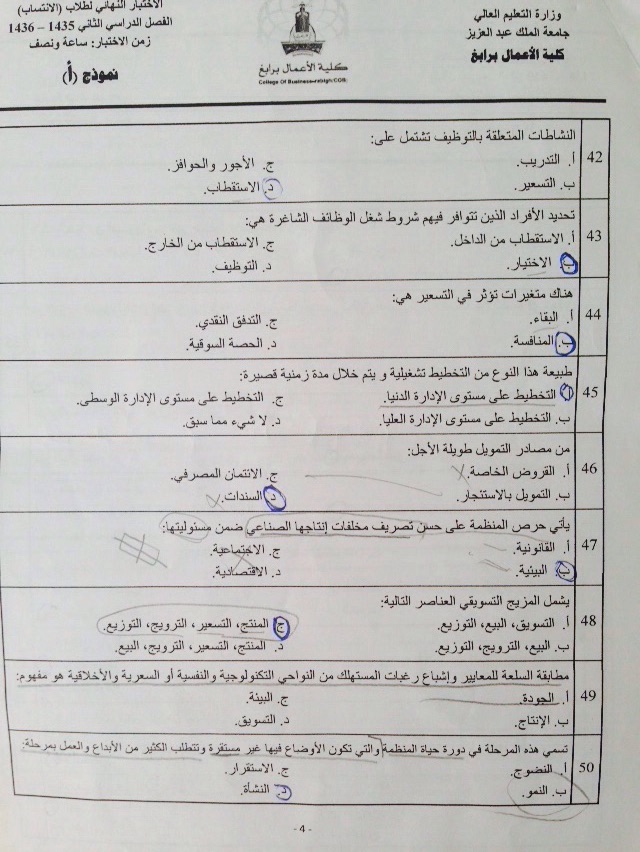 وزارة التعليم العالي
جامعة الملك عبد العزيز
كلية الأعمال برابغ
كلية الأعمال برابغ
College Of Business-rabigh(COB)
الاختبار النهائي لطلاب (الانتساب)
الفصل الدراسي الثاني 1435 – 1436
زمن الاختبار: ساعة ونصف
نموذج (أ)
42 النشاطات المتعلقة بالتوظيف تشتمل على:
أ. التدريب. ج. الأجور والحوافز.
ب. التسعير. د. الاستقطاب.
43 تحديد الأفراد الذين تتوافر فيهم شروط شغل الوظائف الشاغرة هي:
أ. الاستقطاب من الداخل. ج. الاستقطاب من الخارج.
ب. الاختيار. د. التوظيف.
44 هناك متغيرات تؤثر في التسعير هي:
أ. البقاء. ج. التدفق النقدي.
ب. المنافسة. د. الحصة السوقية.
45 طبيعة هذا النوع من التخطيط تشغيلية و يتم خلال مدة زمنية قصيرة:
أ. التخطيط على مستوى الإدارة الدنيا. ج. التخطيط على مستوى الإدارة الوسطى.
ب. التخطيط على مستوى الإدارة العليا. د. لا شيء مما سبق.
46 من مصادر التمويل طويلة الأجل:
أ. القروض الخاصة. ج. الائتمان المصرفي.
ب. التمويل بالاستئجار. د. السندات.
47 يأتي حرص المنظمة على حسن تصريف مخلفات إنتاجها الصناعي ضمن مسئوليتها:
أ. القانونية. ج. الاجتماعية.
ب. البيئية. د. الاقتصادية.
48 يشمل المزيج التسويقي العناصر التالية:
أ. التسويق، البيع، التوزيع. ج. المنتج، التسعير، الترويج، التوزيع.
ب. البيع، الترويج، التوزيع. د. المنتج، التسعير، الترويج، البيع.
49 مطابقة السلعة للمعايير وإشباع رغبات المستهلك من النواحي التكنولوجية والنفسية أو السعرية والأخلاقية هو مفهوم:
أ. الجودة. ج. البيئة.
ب. الإنتاج. د. التسويق.
50 تسمى هذه المرحلة في دورة حياة المنظمة والتي تكون الأوضاع فيها غير مستقرة وتتطلب الكثير من الأبداع والعمل بمرحلة:
أ. النضوج. ج. الاستقرار.
ب. النمو. د. النشأة.
- 4 -